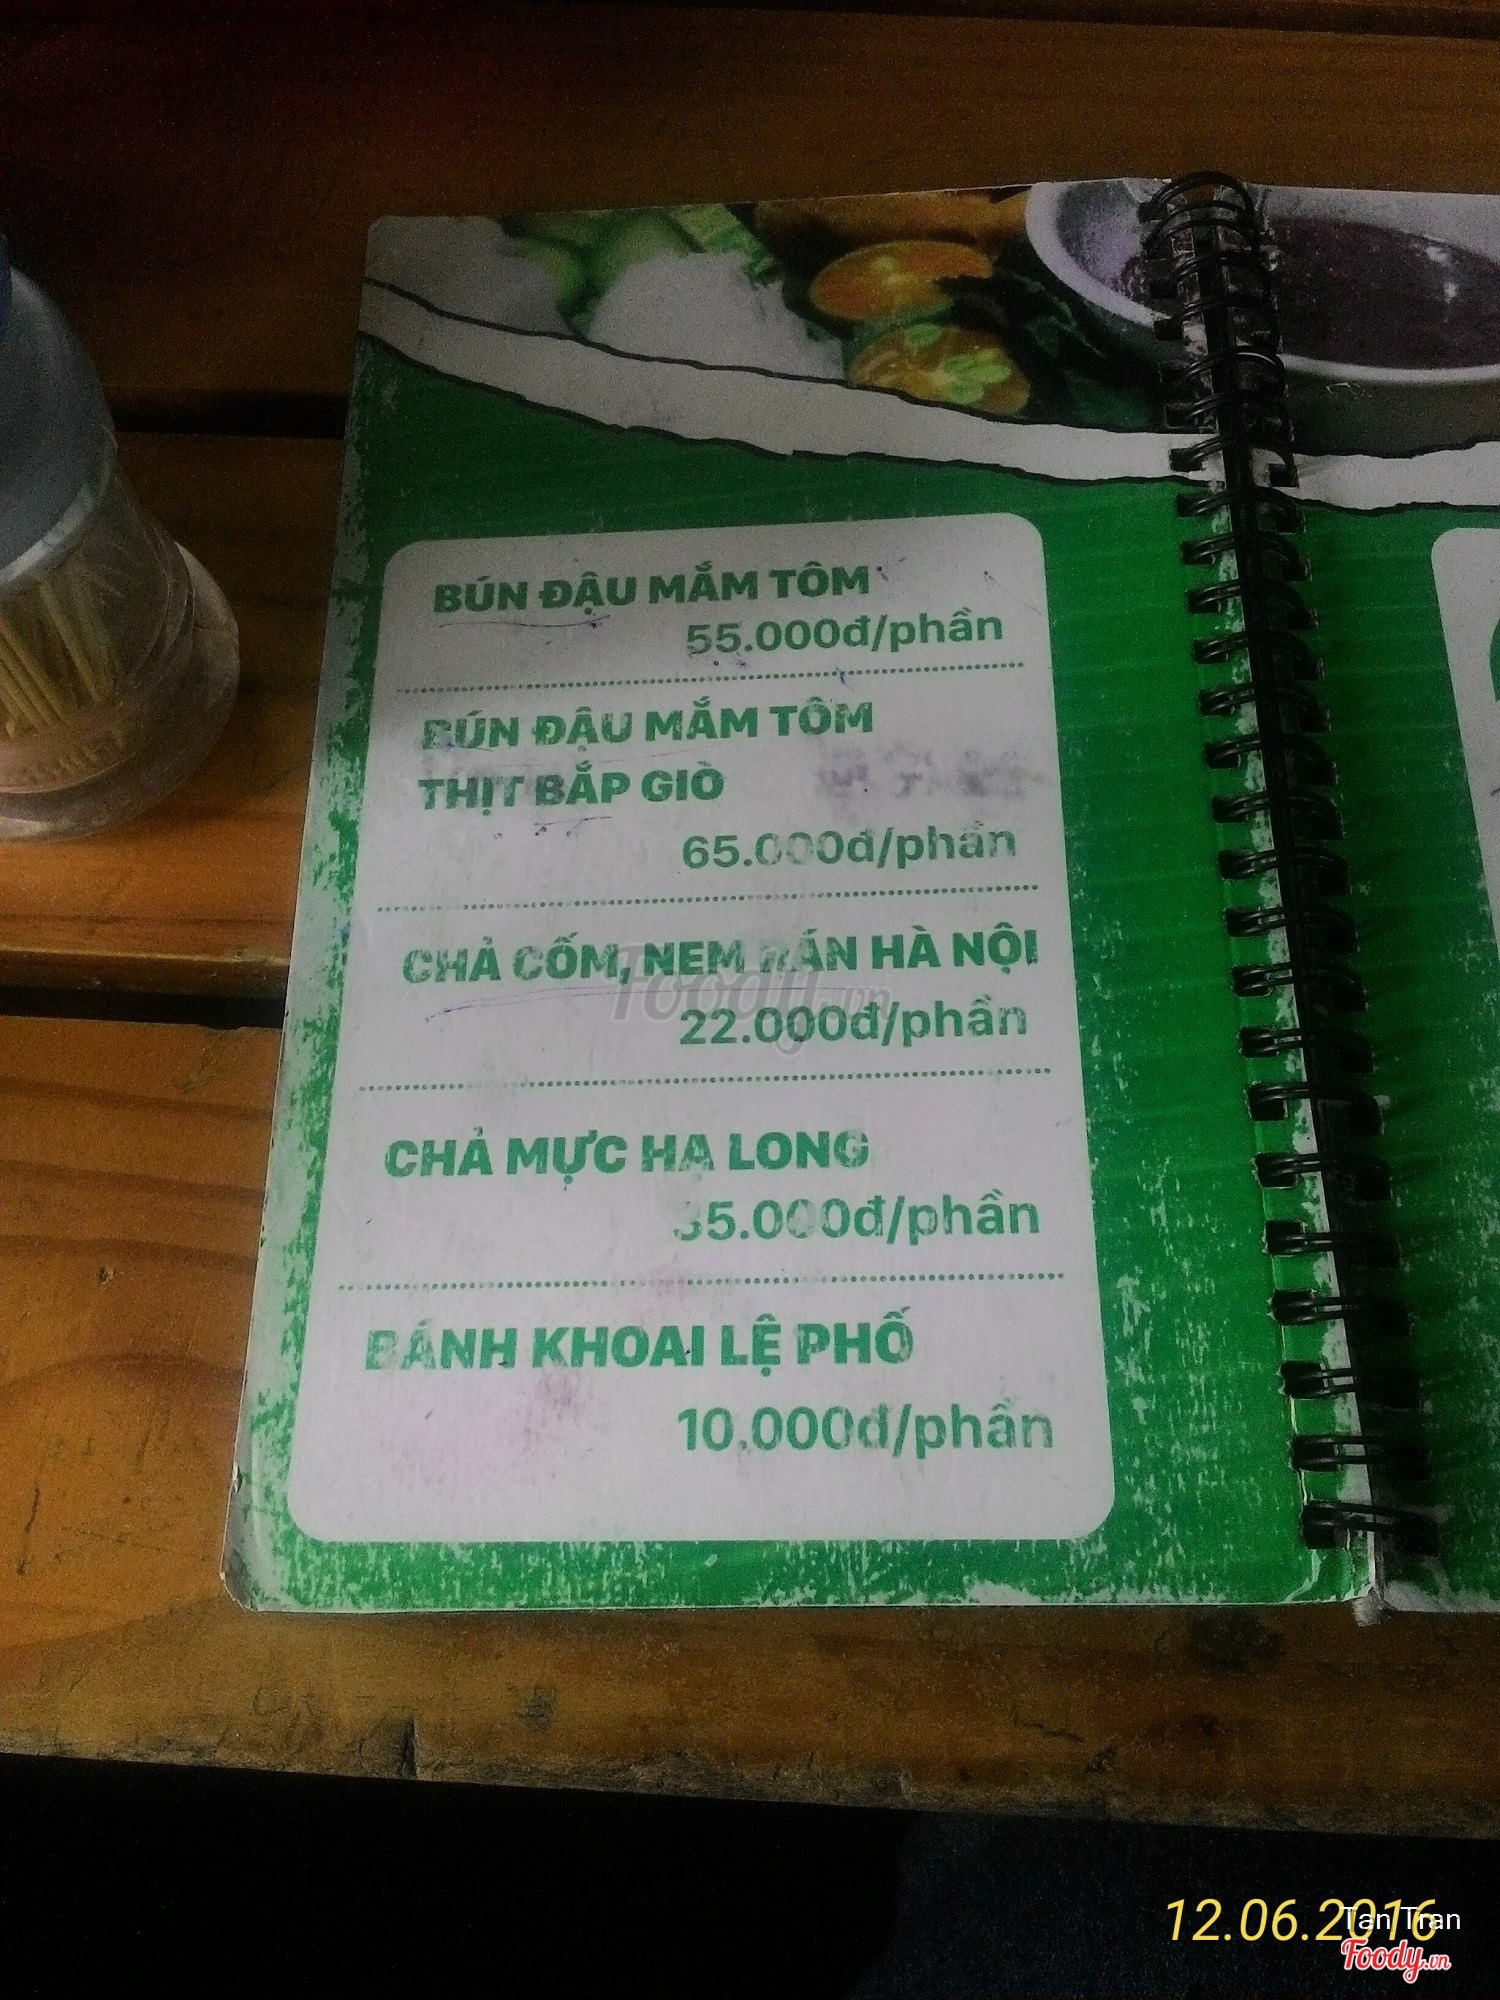 BÚN ĐẬU MẮM TÔM
55.000đ/phần
BÚN ĐẬU MẮM TÔM
THỊT BẮP GIÒ
65.000đ/phần
CHẢ CỐM, NEM RÁN HÀ NỘI
22.000đ/phần
Foody.vn
CHẢ MỰC HẠ LONG
35.000đ/phần
BÁNH KHOAI LỆ PHỐ
10.000đ/phần
12.06.2016
Tan Tran
Foody.vn